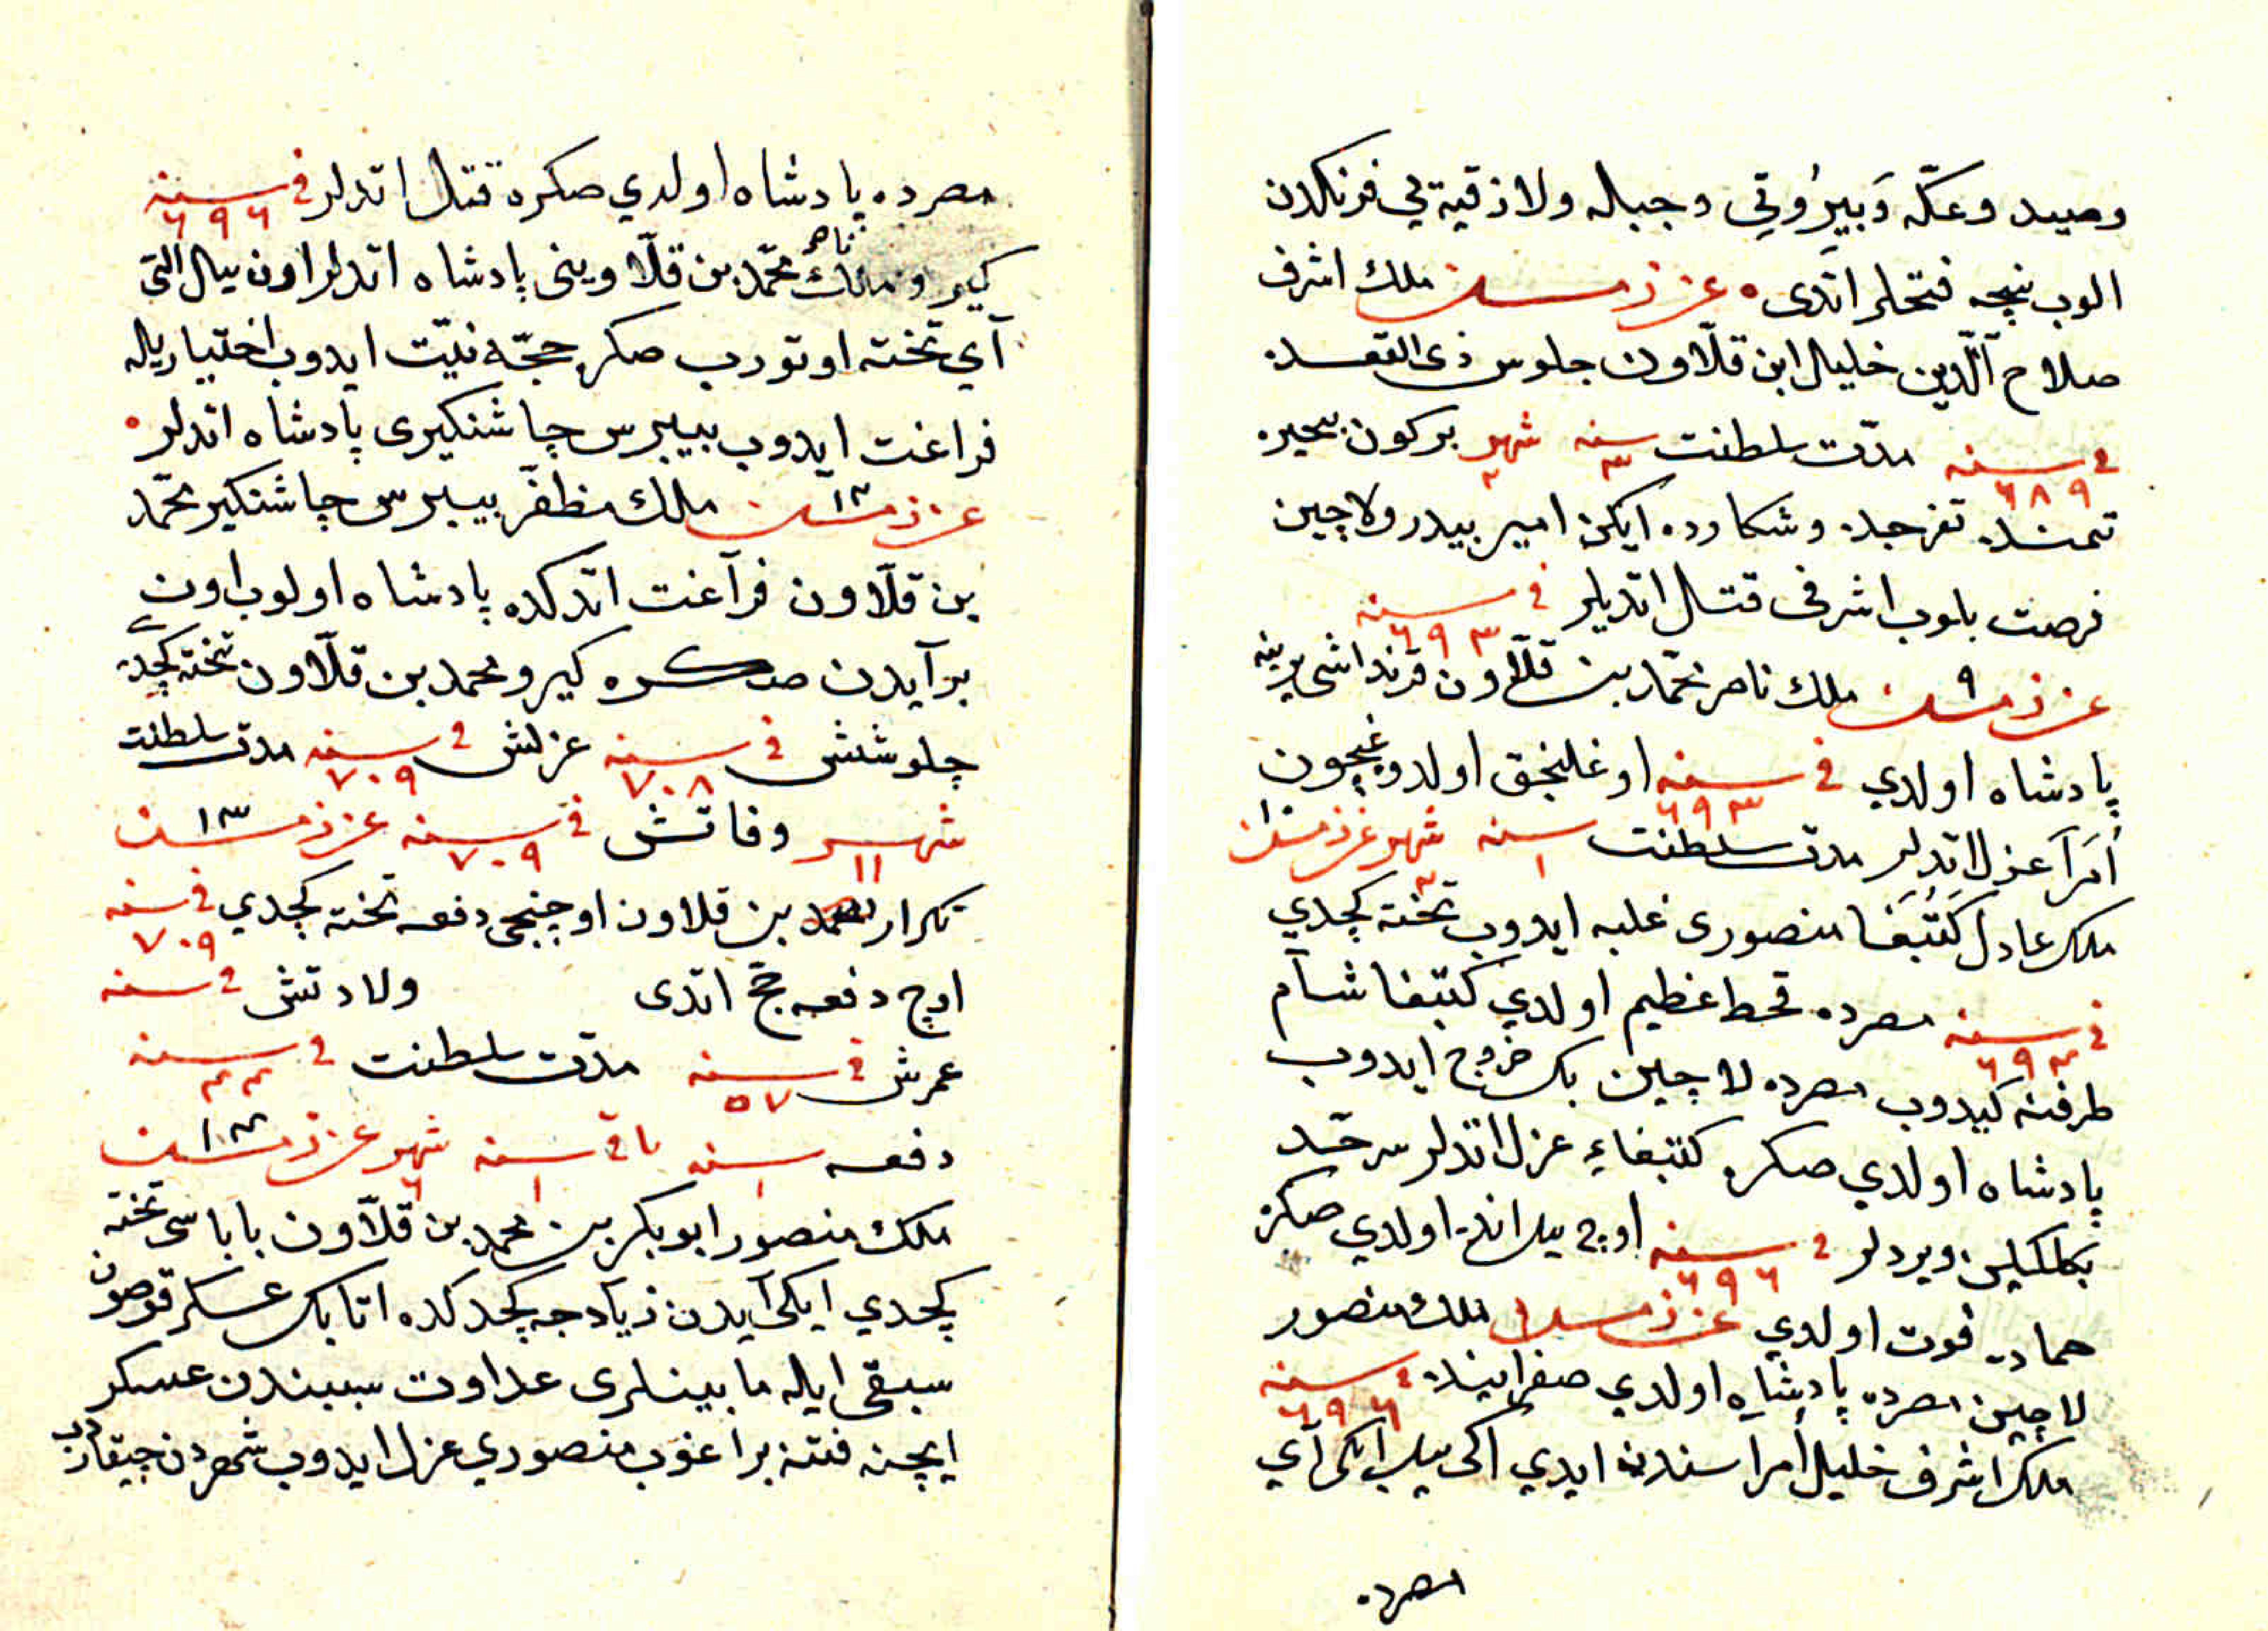 وصيد وعكّه وَبيرُوتي وجبله ولاذقيه يي فرنكدن
الوب نيجه فتحلر اتدى عزيز مصر ملك اشرف
صلاح الّدين خليل ابن قلاّون جلوس ذى القعده
في سنه ٦٨٩ مدّت سلطنت سنه ٣ شهر ٢ بركون بحيره
تفرجده وشكارده ايكن امير بيدر ولاچين
فرصت بلوب اشرفى قتل اتديلر في سنه ٦٩٣
عزيز مصر ٩ ملك ناصر محمّد بن قلاّون قرنداشى يرينه
پادشاه اولدي في سنه ٦٩٣ اوغلنجق اولدوغيچون
اُمَرآ عزل اتدلر مدت سلطنت سنه ١ شهر عزيز مصر ١٠
ملك عادل كَتُبَغا منصورى غلبه ايدوب تخته كچدي
في سنه ٦٩٤ مصرده قحط عظيم اولدي كتبغا شآم
طرفنه كيدوب مصرده لاچين بك خروج ايدوب
پادشاه اولدي صكره كتبغاء عزل اتدلر سرحّد
بكلكلين ويردلر في سنه ٦٩٦ اوچ ييل انده اولدي صكره
حماده فوت اولدي عزيز مصر ملك منصور
لاچين مصرده پادشاه اولدي صفر اينده في سنه ٦٩٦
ملك اشرف خليل اُمراسندن ايدي ايكى ييل ايكى آي
مصرده
مصرده پادشاه اولدي صكره قتل اتدلر في سنه ٦٩٦
كيرو ملك ناصر محمّد بن قلاّوينى پادشاه اتدلر اون ييل التى
آي تخته اوتورب صكره حجّه نيّت ايدوب اختياريله
فراغت ايدوب بيبرس چاشنكيرى پادشاه اتدلر
عزيز مصر ١٢ ملك مظفّر بيبرس چاشنكير محمّد
بن قلاّون فرآغت اتدكده پادشاه اولوب اون
بر آيدن صكره كيرو محمد بن قلاّون تخته كچدي
جلوسش في سنه ٧٠٨ عزلش في سنه ٧٠٩ مدت سلطنت
شهر ١١ وفاتش في سنه ٧٠٩ عزيز مصر ١٣
تكرار محمد بن قلاون اوچنجى دفعه تخته كچدي في سنه ٧٠٩
اوچ دفعه حجّ اتدى ولادتش في سنه
عمرش في سنه ٥٧ مدّت سلطنت في سنه ٤٣
دفعه سنه ١ باقى سنه ١ شهر ٦ عزيز مصر ١٤
ملك منصور ابو بكر بن محمد بن قلاّون باباسى تخته
كچدي ايكى آيدن زيادجه كچدكده اتابك عسكر قوصون
سبقى ايله مابينلرى عداوت سببندن عسكر
ايچنه فتنه براغوب منصوري عزل ايدوب شهردن چيقاردب